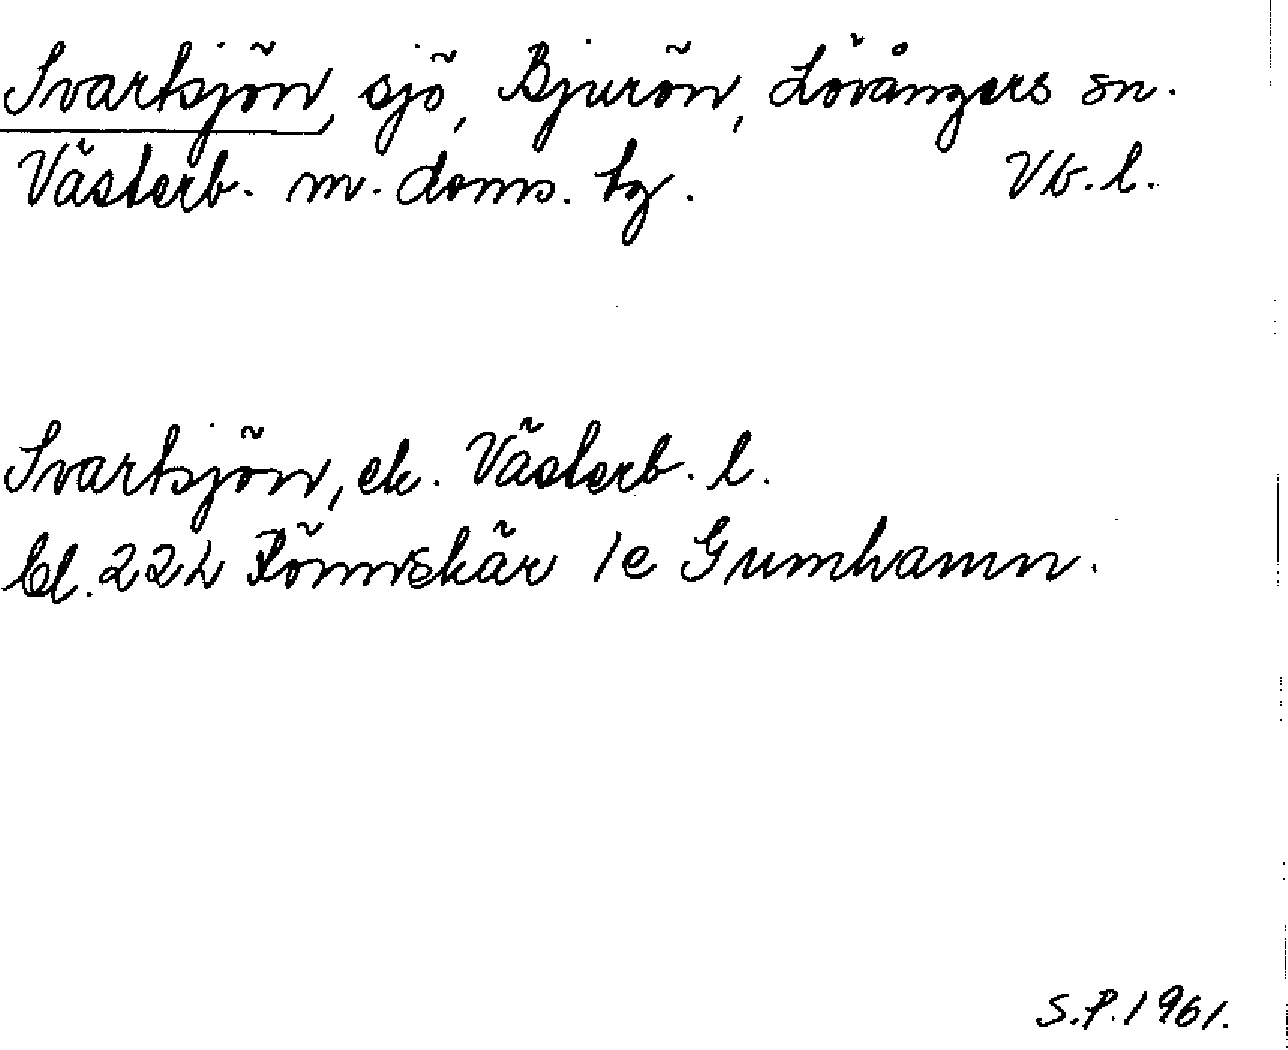 Svartsjön, sjö, Bjurön, Lövångers sn.
Västerb. m. doms. tg. Vb. l.
Svartsjön, ek. Västerb. l.
bl. 22L Rönnskär 1e Gumhamn.
S.P. 1961.